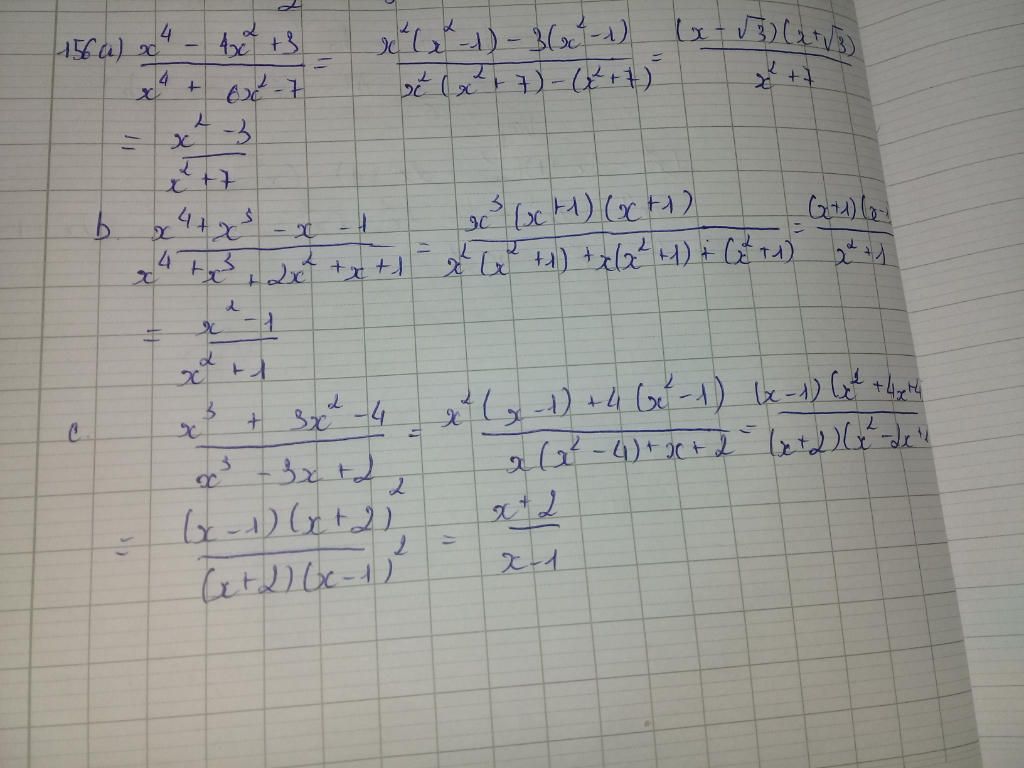 156a) x⁴ - 4x² + 3 / x⁴ + 6x² - 7 = x²(x² - 1) - 3(x² - 1) / x²(x² + 7) - (x² + 7) = (x - √3)(x + √3) / x² + 7
= x² - 3 / x² + 7
b. x⁴ + x³ - x - 1 / x⁴ + x³ + 2x² + x + 1 = x³(x + 1)(x + 1) / x²(x² + 1) + x(x² + 1) + (x² + 1) = (x + 1)(x - / x² + 1
= x² - 1 / x² + 1
c. x³ + 3x² - 4 / x³ - 3x + 2 = x²(x - 1) + 4(x² - 1) / x(x² - 4) + x + 2 = (x - 1)(x² + 4x + 4 / (x + 2)(x² - 2x +
= (x - 1)(x + 2)² / (x + 2)(x - 1)² = x + 2 / x - 1